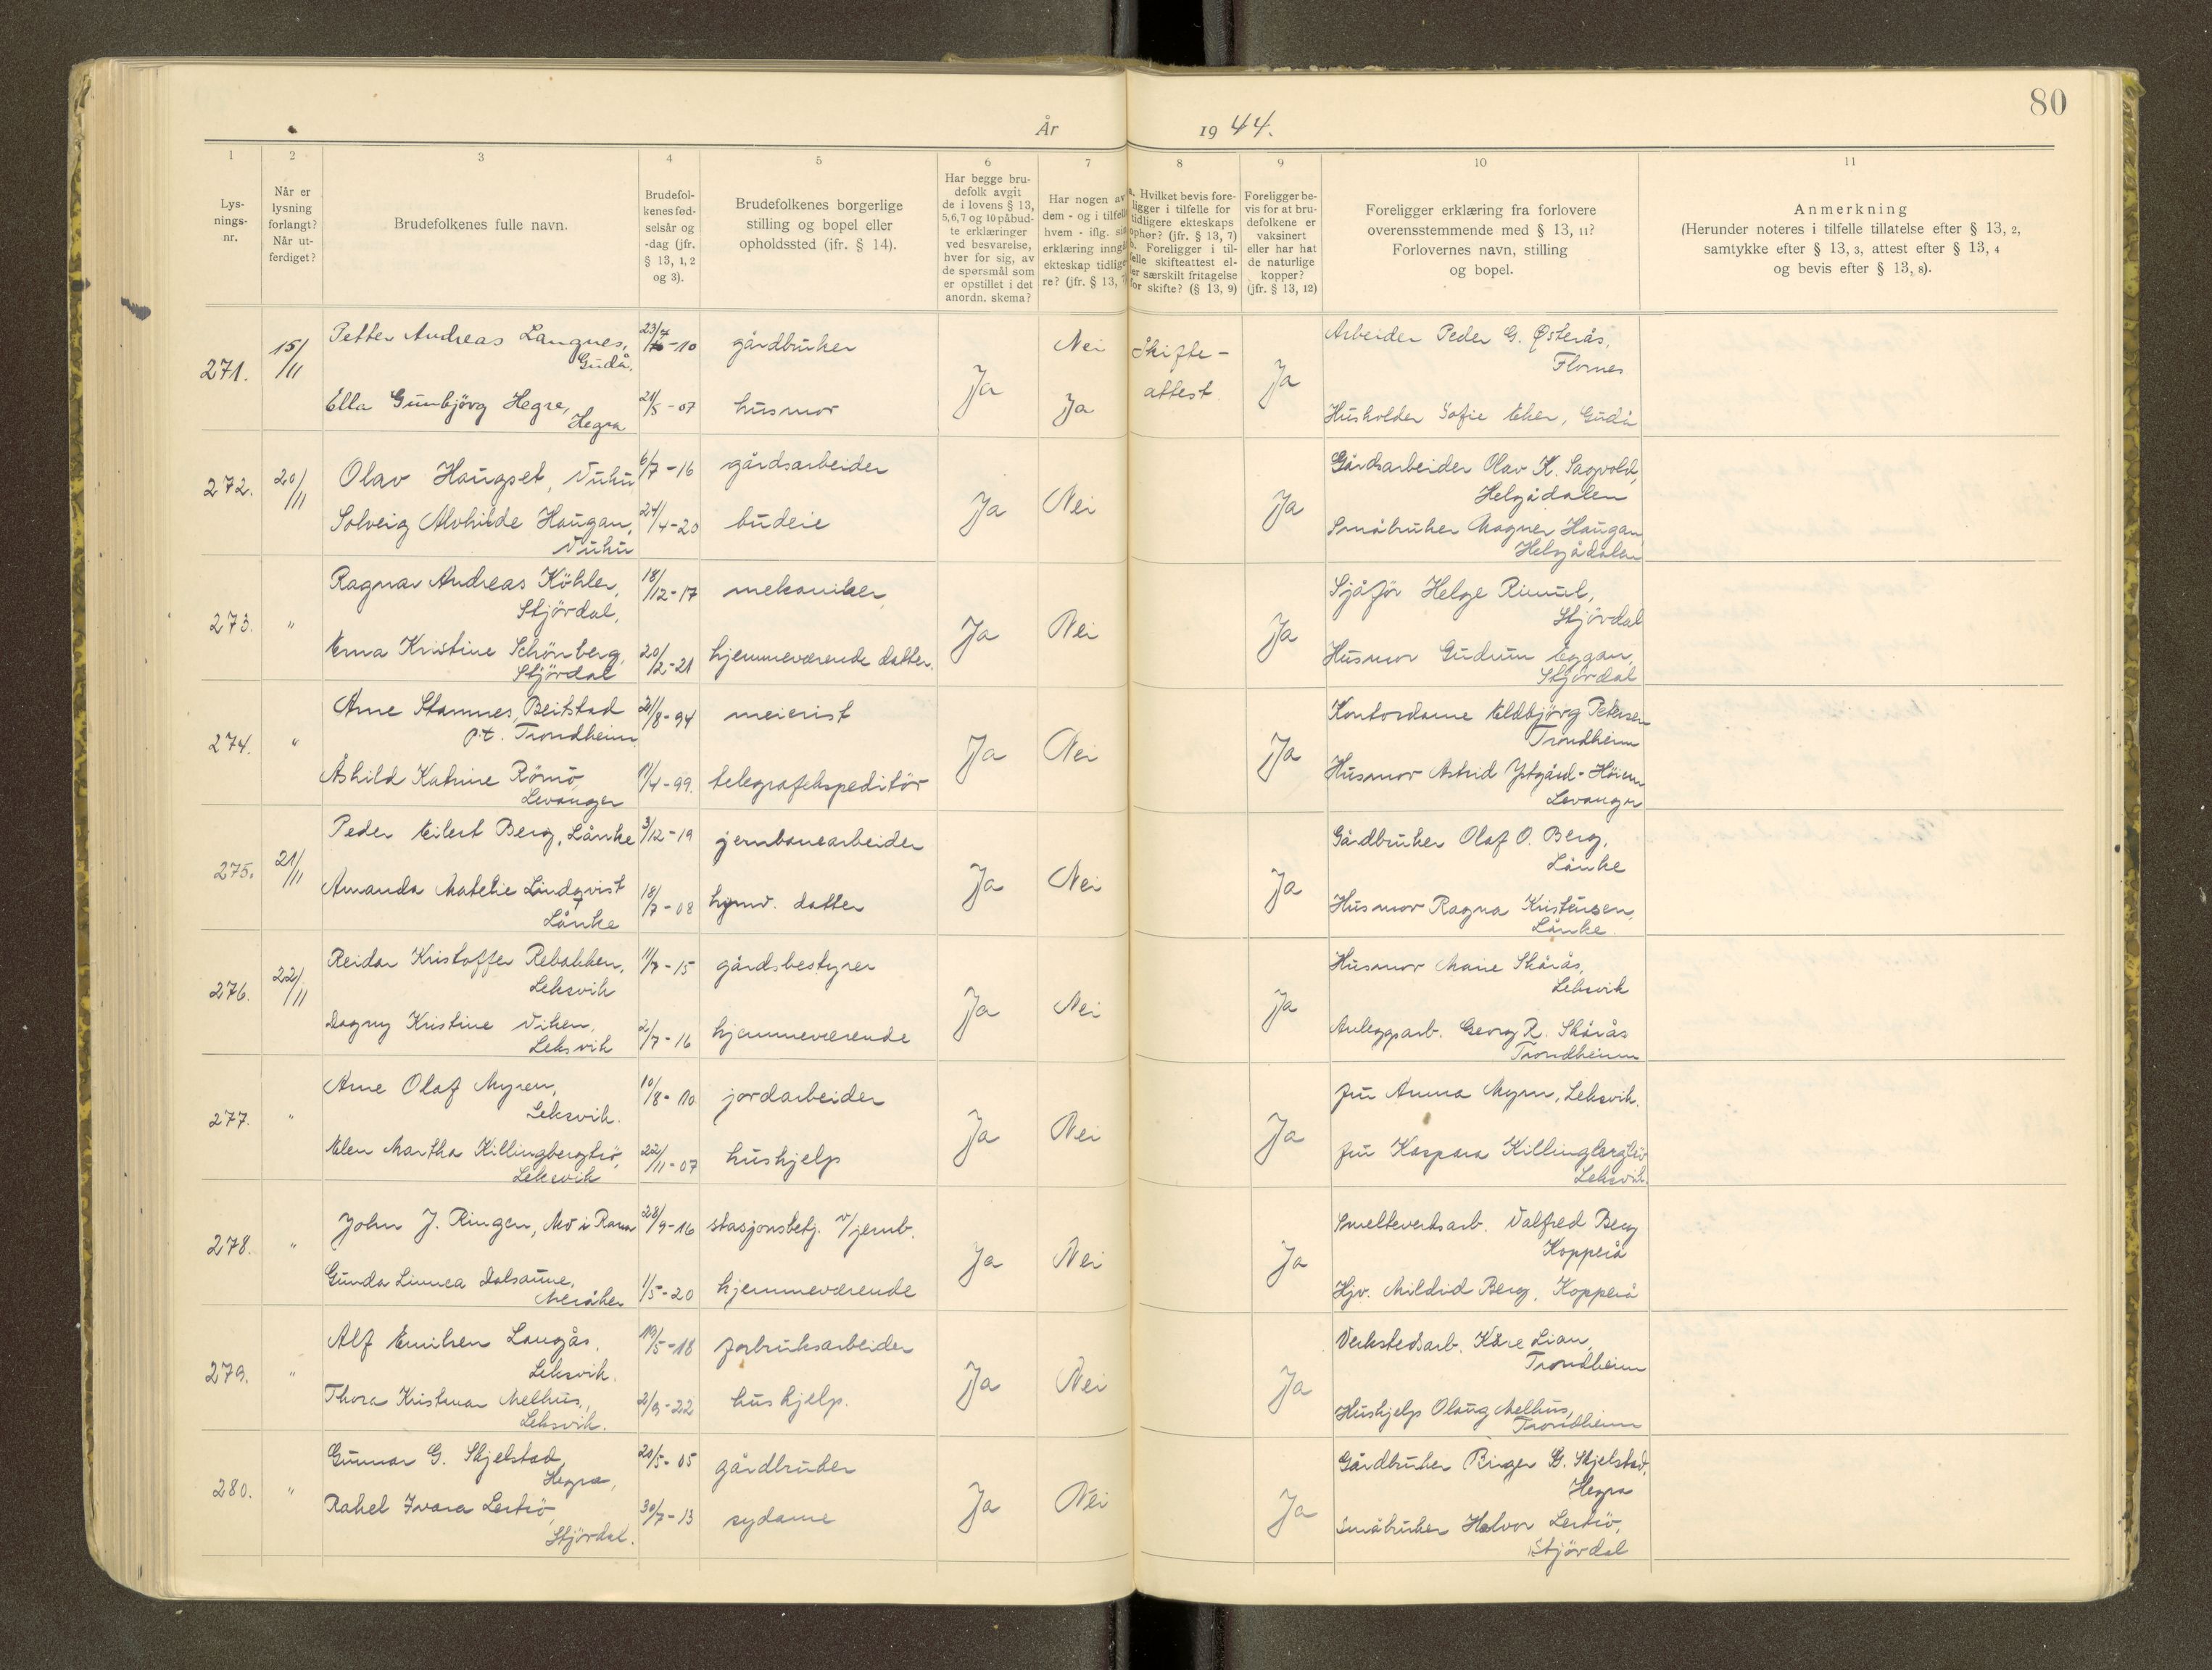 80
År 1944.
1 2 3 4 5 6 7 8 9 10 11
Lys-
nings-
nr.
Når er
lysning
forlangt?
Når ut-
ferdiget?
Brudefolkenes fulle navn.
Brudefol-
kenes fød-
selsår og
-dag (jfr.
§ 13, 1, 2
og 3).
Brudefolkenes borgerlige
stilling og bopel eller
opholdssted (jfr. § 14).
Har begge bru-
defolk avgit
de i lovens § 13,
5,6,7 og 10 påbud-
te erklæringer
ved besvarelse,
hver for sig, av
de spørsmål som
er opstillet i det
anordn. skema?
Har nogen av
dem - og i tilfelle
hvem - iflg. sin
erklæring inngåt
ekteskap tidlige-
re? (jfr. § 13, 7)
a. Hvilket bevis fore-
ligger i tilfelle for
tidligere ekteskaps
ophør? (jfr. § 13, 7)
b. Foreligger i til-
felle skifteattest el-
ler særskilt fritagelse
for skifte? (§ 13, 9)
Foreligger be-
vis for at bru-
defolkene er
vaksinert
eller har hat
de naturlige
kopper?
(jfr. § 13, 12)
Foreligger erklæring fra forlovere
overensstemmende med § 13, 11?
Forlovernes navn, stilling
og bopel.
Anmerkning
(Herunder noteres i tilfelle tillatelse efter § 13, 2,
samtykke efter § 13, 3, attest efter § 13, 4
og bevis efter § 13, 8).
271. 15/11 Petter Andreas Langnes, 23/4-10 gårdbruker Nei Skifte- Arbeider Peder G. Østerås,
Gudå, Ja attest Ja Flornes
Ella Gunbjörg Hegre, 21/5-07 husmor Ja Husholder Sofie Eker, Gudå
Hegra
272. 20/11 Olav Haugset, Vuku 6/7-16 gårdsarbeider Ja Nei Ja Gårdsarbeider Olav K. Sagvold,
Helgådalen
Solveig Alvhilde Haugan, 24/4-20 budeie Småbruker Magner Haugan
Vuku Helgådalen
273. " Ragnar Andreas Köhler, 18/12-17 mekaniker Ja Nei Ja Sjåför Helge Rimul,
Stjördal, Stjördal
Erna Kristine Schönberg, 20/12-21 hjemmeværende datter. Husmor Gudrun Eggan,
Stjördal Stjördal
274. " Arne Stamnes, Beitstad 21/8-94 meierist Ja Nei Ja Kontordame Eldbjörg Petersen
p.t. Trondheim Trondheim
Åshild Katrine Römo, 11/4-99. telegrafekspeditör Husmor Astrid Ystgård-Höiem
Levanger Levanger
275. 21/11 Peder Eilert Berg, Lånke 3/12-19 jernbanearbeider Ja Nei Ja Gårdbruker Olaf O. Berg,
Lånke
Amanda Matelie Lindqvist 18/7-08 hjmv. datter Husmor Ragna Kristensen,
Lånke Lånke.
276. 22/11 Reidar Kristoffer Rebakken, 11/7-15 gårdsbestyrer Ja Nei Ja Husmor Marie Skårås,
Leksvik Leksvik
Dagny Kristine Viken, 2/7-16 hjemmeværende Anleggsarb. Georg R. Skårås
Leksvik Trondheim
277. " Arne Olaf Myren, 10/8-10 jordarbeider Ja Nei Ja fru Anna Myren, Leksvik.
Leksvik.
Elen Martha Killingbergtrö, 22/11-07 hushjelp fru Kaspara Killingbergtrö
Leksvik Leksvik.
278. " John J. Ringen, Mo i Rana 28/9-16 stasjonsbetj. v/jernb. Ja Nei Ja Smelteverksarb. Valfred Berg
Kopperå
Gunda Linnea Dalsaune, 1/5-20 hjemmeværende Hjv. Mildrid Berg, Kopperå
Meråker
279. " Alf Emilsen Langås, 19/5-18 forbruksarbeider Ja Nei Ja Verkstedsarb. Kåre Lian,
Leksvik. Trondheim
Thora Melhus, 2/9-22 hushjelp. Hushjelp Olaug Melhus,
Leksvik. Trondheim
280. " Gunnar G. Skjelstad, 20/5-05 gårdbruker Ja Nei Ja Gårdbruker Birger G. Skjelstad,
Hegra, Hegra
Rahel Ivara Lertrö, 30/7-13 sydame Småbruker Halvor Lertrö,
Stjördal. Stjördal